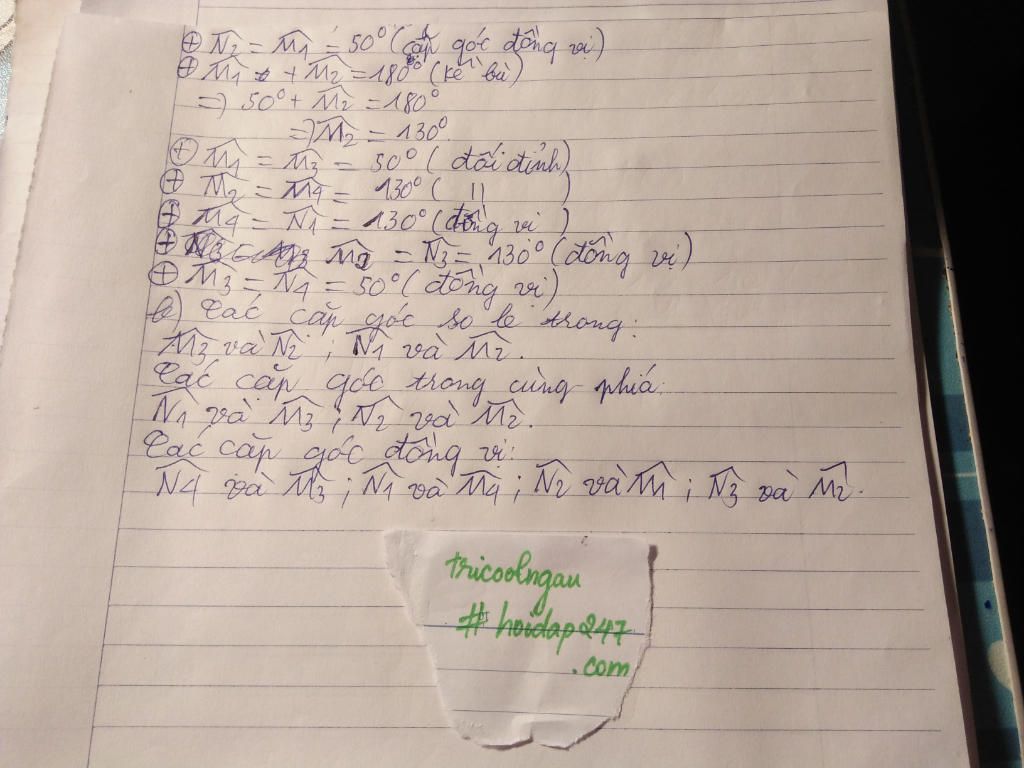 ⊕ N̂2 = M̂1 = 50° (cặp góc đồng vị)
⊕ M̂1 + M̂2 = 180° (kề bù)
=) 50° + M̂2 = 180°
=) M̂2 = 130°.
⊕ M̂1 = M̂3 = 50° ( đối đỉnh)
⊕ M̂2 = M̂4 = 130° ( || )
⊕ M̂4 = N̂1 = 130° (đồng vị )
⊕ M̂2 = N̂3 = 130° (đồng vị)
⊕ M̂3 = N̂4 = 50° ( đồng vị)
b) Các cặp góc so le trong:
M̂3 và N̂2 ; N̂1 và M̂2.
Các cặp góc trong cùng phía:
N̂1 và M̂3 ; N̂2 và M̂2.
Các cặp góc đồng vị:
N̂4 và M̂3 ; N̂1 và M̂4 ; N̂2 và M̂1 ; N̂3 và M̂2.
tricoolngau
# hoidap247
.com